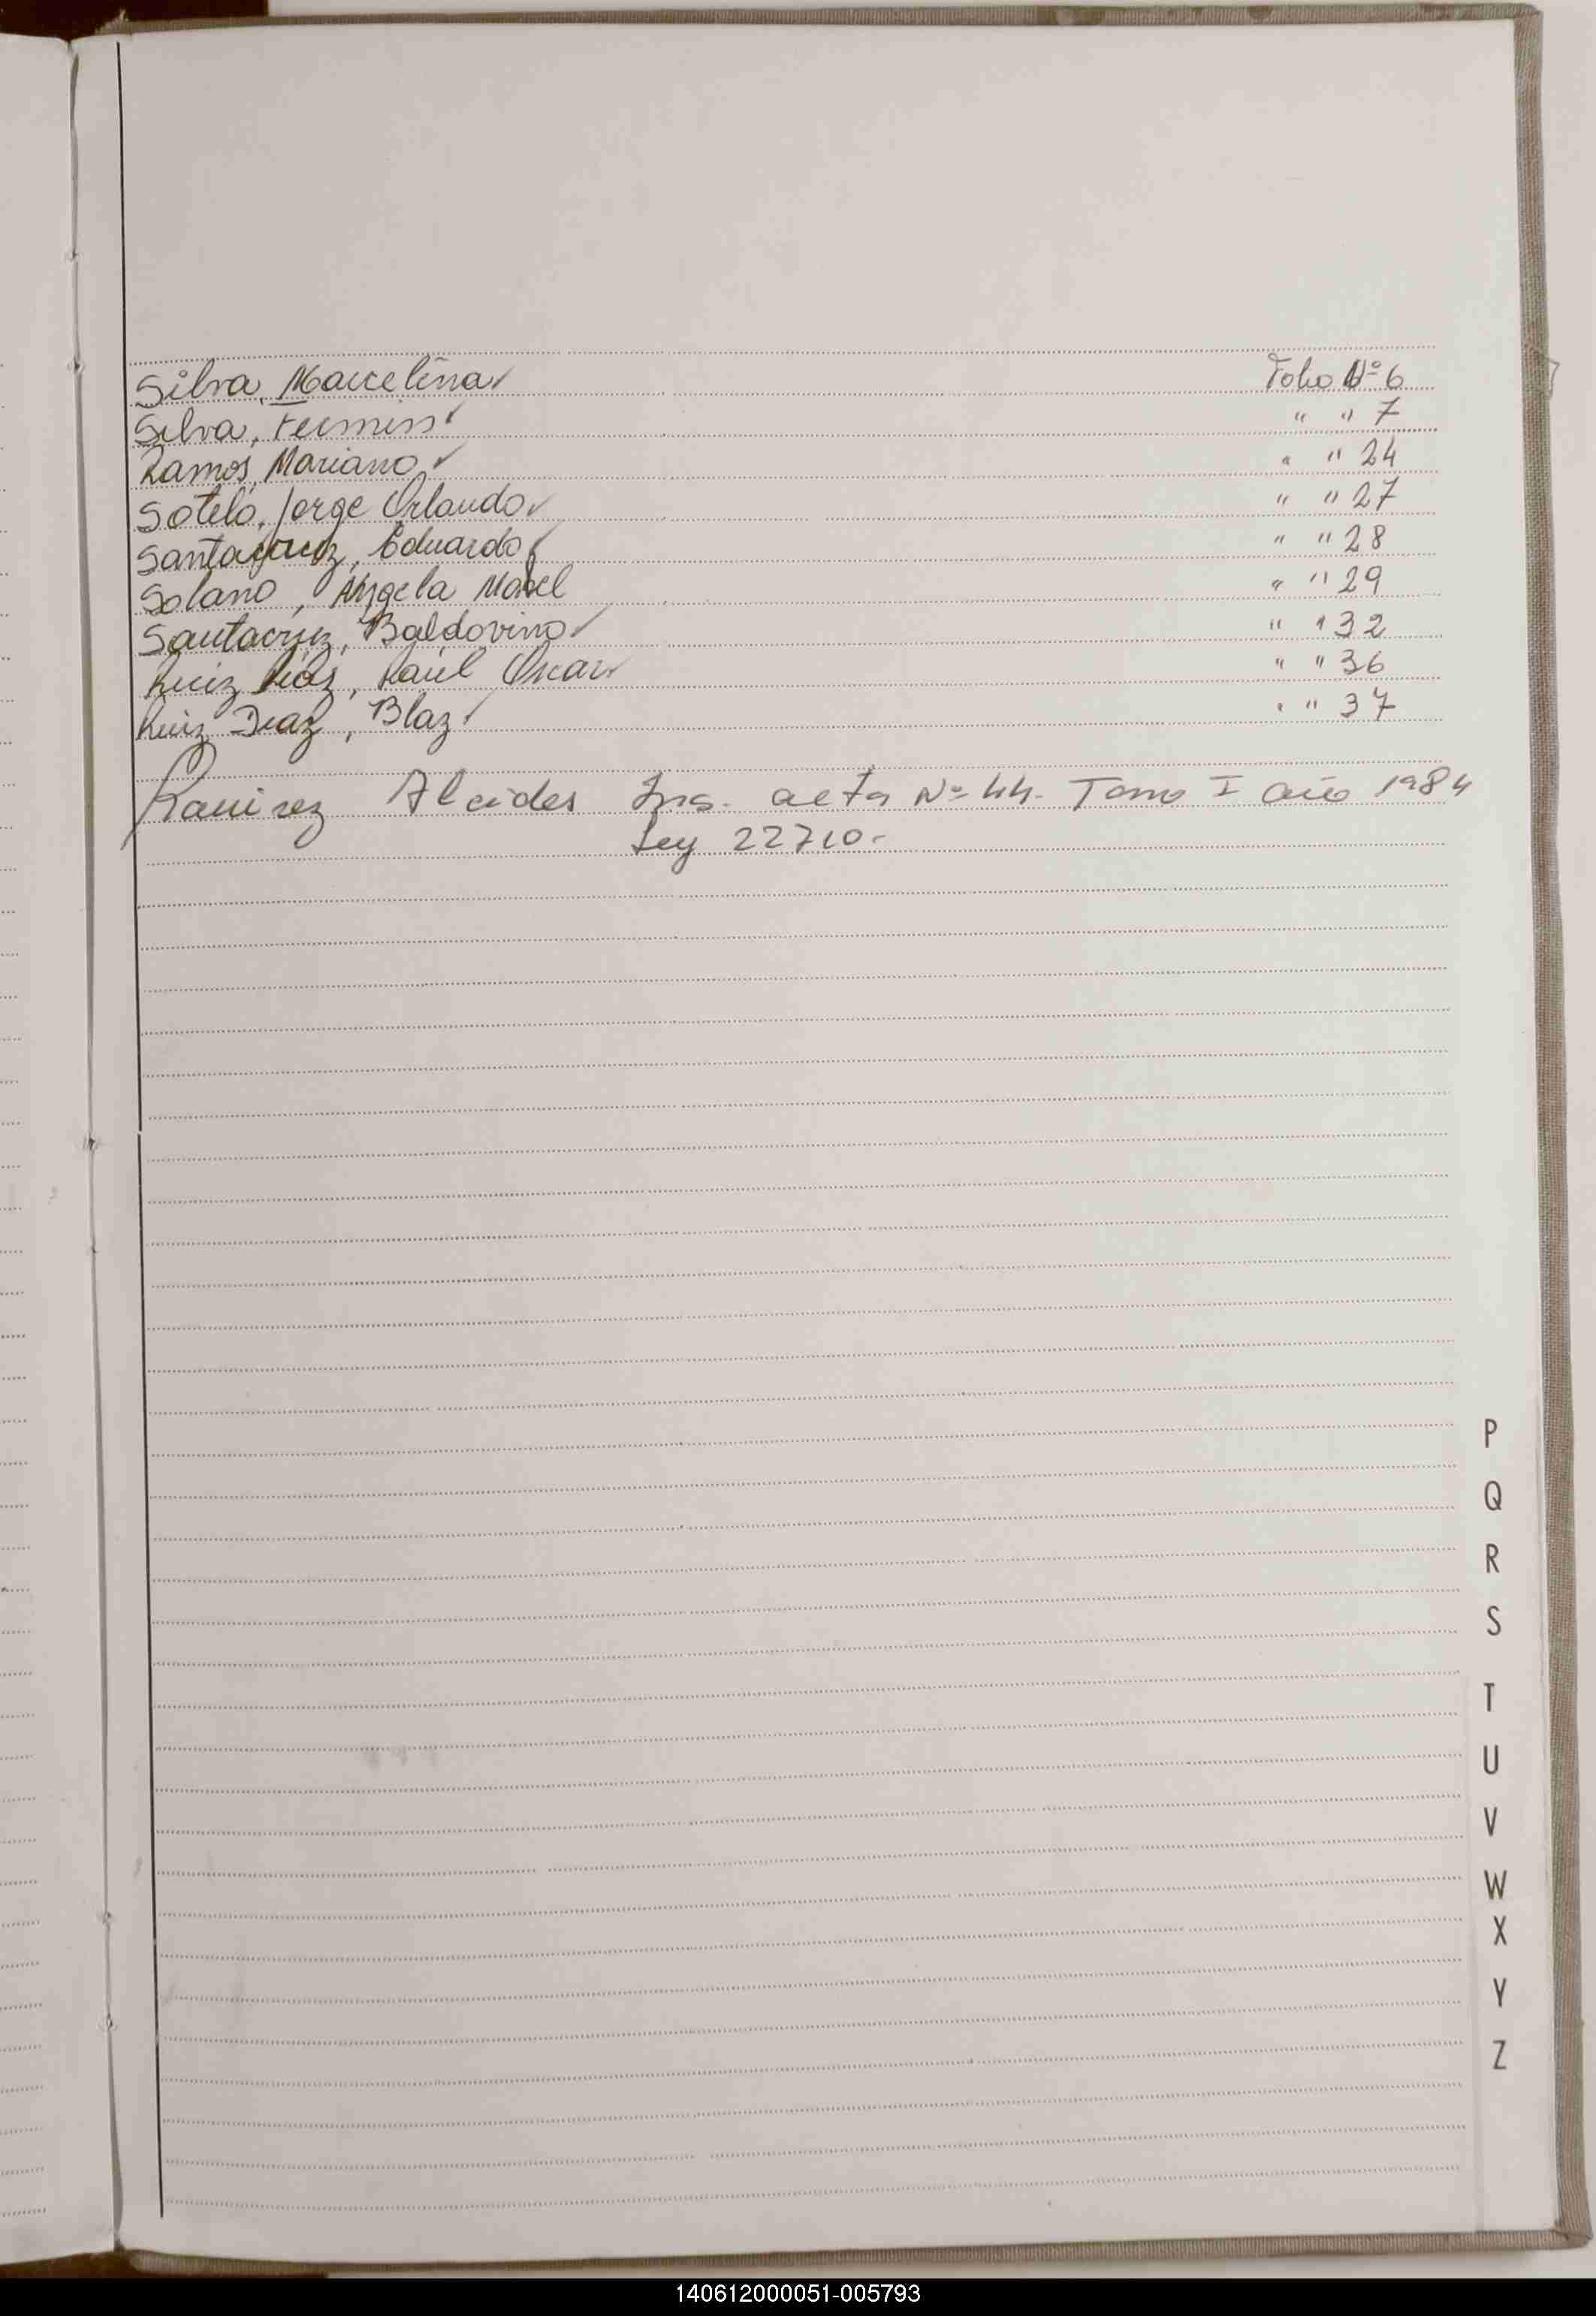 Silva, Marcelina ✓ Folio Nº 6
Silva, Fermin ✓ " " 7
Ramos, Mariano ✓ " " 24
Sotelo, Jorge Orlando ✓ " " 27
Santacruz, Eduardo ✓ " " 28
Solano, Angela Mabel " " 29
Santacruz, Baldovino ✓ " " 32
Ruiz Diaz, Raúl Oscar ✓ " " 36
Ruiz Diaz, Blaz ✓ " " 37
Ramirez Alcides Ins. acta Nº 44. Tomo I año 1984
Ley 22710-
P
Q
R
S
T
U
V
W
X
Y
Z
140612000051-005793